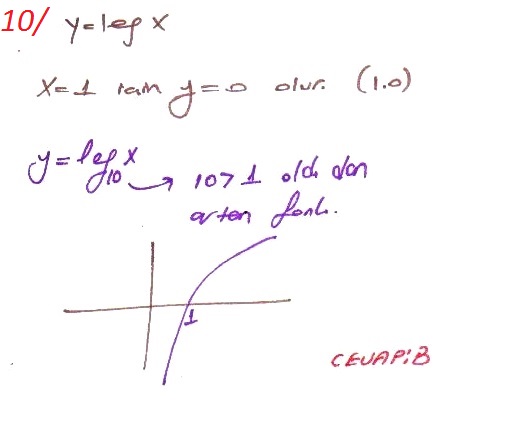 10/ y=log x
x=1 için y=0 olur. (1.0)
y=log₁₀ x → 10>1 old. dan
artan fonk.
1
CEVAP:B